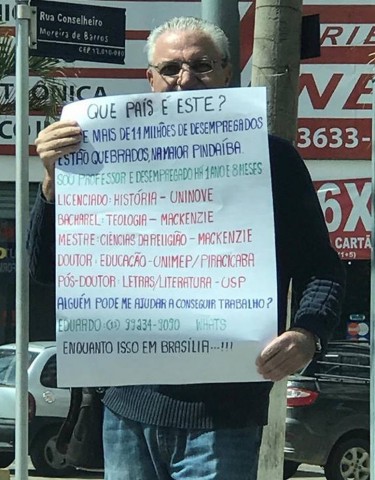 Rua Conselheiro
Moreira de Barros
CEP
RIE
TRÔNICA
NE
3633-
6X
CARTÃ
QUE PAÍS É ESTE?
E MAIS DE 14 MILHÕES DE DESEMPREGADOS
ESTÃO QUEBRADOS, NA MAIOR PINDAÍBA.
SOU PROFESSOR E DESEMPREGADO HÁ 1 ANO E 8 MESES
LICENCIADO: HISTÓRIA - UNINOVE
BACHAREL: TEOLOGIA - MACKENZIE
MESTRE: CIÊNCIAS DA RELIGIÃO - MACKENZIE
DOUTOR: EDUCAÇÃO - UNIMEP/PIRACICABA
PÓS-DOUTOR: LETRAS/LITERATURA - USP
ALGUÉM PODE ME AJUDAR A CONSEGUIR TRABALHO?
EDUARDO (11) 99234-9090 WHATS
ENQUANTO ISSO EM BRASÍLIA...!!!